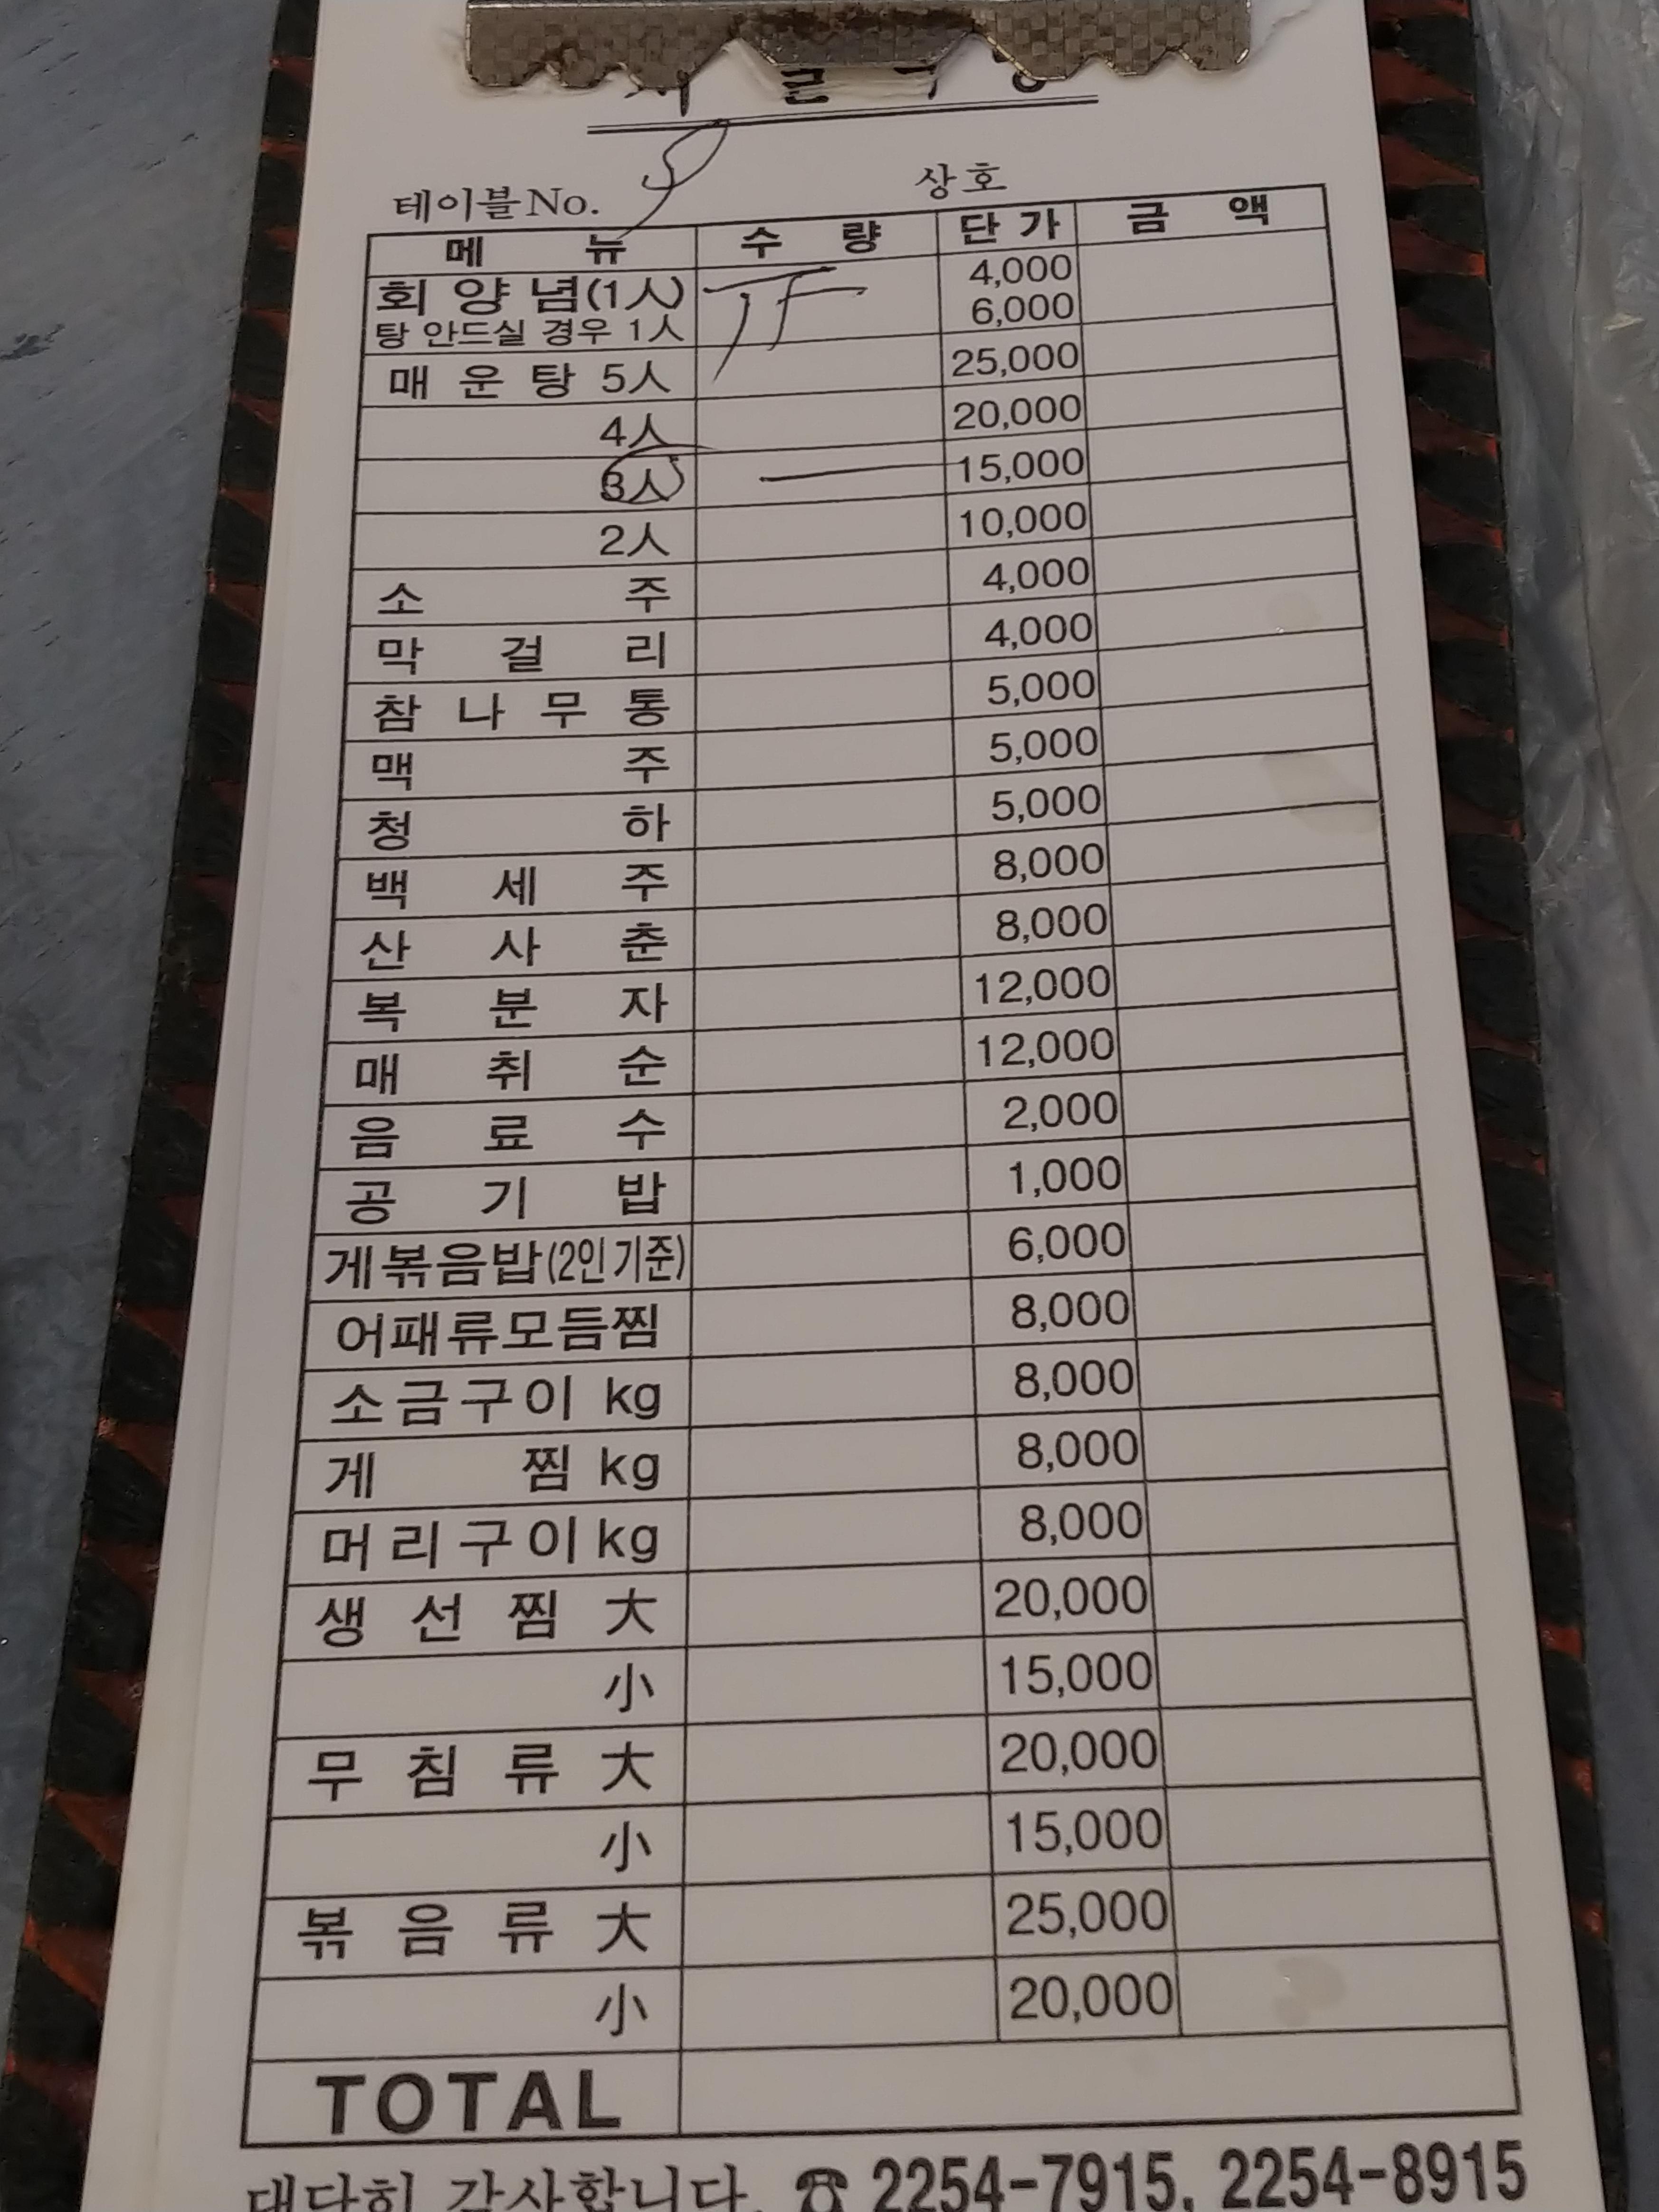 테이블 No. 상호
메 뉴 수 량 단 가 금 액
회 양 념(1人) 4,000
탕 안드실 경우 1人 6,000
매 운 탕 5人 25,000
4人 20,000
3人 一 15,000
2人 10,000
소 주 4,000
막 걸 리 4,000
참 나 무 통 5,000
맥 주 5,000
청 하 5,000
백 세 주 8,000
산 사 춘 8,000
복 분 자 12,000
매 취 순 12,000
음 료 수 2,000
공 기 밥 1,000
게볶음밥(2인 기준) 6,000
어패류모듬찜 8,000
소금구이 kg 8,000
게 찜 kg 8,000
머리구이 kg 8,000
생 선 찜 大 20,000
小 15,000
무 침 류 大 20,000
小 15,000
볶 음 류 大 25,000
小 20,000
TOTAL
대단히 감사합니다. ☎ 2254-7915, 2254-8915